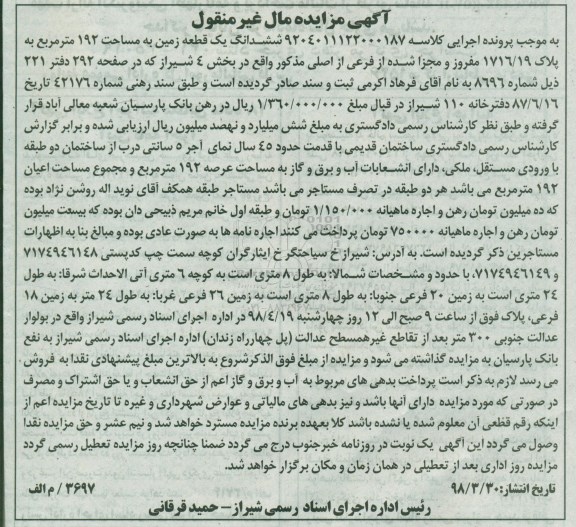 آگهی مزایده مال غیر منقول
به موجب پرونده اجرایی کلاسه ۹۲۰۴۰۱۱۱۲۲۰۰۰۱۸۷ ششدانگ یک قطعه زمین به مساحت ۱۹۲ مترمربع به
پلاک ۱۷۱۶/۱۹ مفروز و مجزا شده از فرعی از اصلی مذکور واقع در بخش ۴ شیراز که در صفحه ۲۹۲ دفتر ۲۲۱
ذیل شماره ۸۶۹۶ به نام آقای فرهاد اکرمی ثبت و سند صادر گردیده است و طبق سند رهنی شماره ۴۲۱۷۶ تاریخ
۸۷/۶/۱۶ دفترخانه ۱۱۰ شیراز در قبال مبلغ ۱/۳۶۰/۰۰۰/۰۰۰ ریال در رهن بانک پارسیان شعبه معالی آباد قرار
گرفته و طبق نظر کارشناس رسمی دادگستری به مبلغ شش میلیارد و نهصد میلیون ریال ارزیابی شده و برابر گزارش
کارشناس رسمی دادگستری ساختمان قدیمی با قدمت حدود ۴۵ سال نمای آجر ۵ سانتی درب از ساختمان دو طبقه
با ورودی مستقل، ملکی، دارای انشعابات آب و برق و گاز به مساحت عرصه ۱۹۲ مترمربع و مجموع مساحت اعیان
۱۹۲ مترمربع می باشد هر دو طبقه در تصرف مستاجر می باشد مستاجر طبقه همکف آقای نوید اله روشن نژاد بوده
که ده میلیون تومان رهن و اجاره ماهیانه ۱/۱۵۰/۰۰۰ تومان و طبقه اول خانم مریم ذبیحی دان بوده که بیست میلیون
تومان رهن و اجاره ماهیانه ۷۵۰۰۰۰ تومان پرداخت می کنند اجاره نامه ها به صورت عادی بوده و مبالغ بنا به اظهارات
مستاجرین ذکر گردیده است. به آدرس: شیراز خ سیاحتگر خ ایثارگران کوچه سمت چپ کدپستی ۷۱۷۴۹۴۶۱۴۸
و ۷۱۷۴۹۴۶۱۴۹، با حدود و مشخصات شمالا: به طول ۸ متری است به کوچه ۶ متری آتی الاحداث شرقا: به طول
۲۴ متری است به زمین ۲۰ فرعی جنوبا: به طول ۸ متری است به زمین ۲۶ فرعی غربا: به طول ۲۴ متر به زمین ۱۸
فرعی، پلاک فوق از ساعت ۹ صبح الی ۱۲ روز چهارشنبه ۹۸/۴/۱۹ در اداره اجرای اسناد رسمی شیراز واقع در بولوار
عدالت جنوبی ۳۰۰ متر بعد از تقاطع غیرهمسطح عدالت (پل چهارراه زندان) اداره اجرای اسناد رسمی شیراز به نفع
بانک پارسیان به مزایده گذاشته می شود و مزایده از مبلغ فوق الذکر شروع به بالاترین مبلغ پیشنهادی نقدا به فروش
می رسد لازم به ذکر است پرداخت بدهی های مربوط به آب و برق و گاز اعم از حق انشعاب و یا حق اشتراک و مصرف
در صورتی که مورد مزایده دارای آنها باشد و نیز بدهی های مالیاتی و عوارض شهرداری و غیره تا تاریخ مزایده اعم از
اینکه رقم قطعی آن معلوم شده یا نشده باشد کلا بعهده برنده مزایده مسترد خواهد شد و نیم عشر و حق مزایده نقدا
وصول می گردد این آگهی یک نوبت در روزنامه خبرجنوب درج می گردد ضمنا چنانچه روز مزایده تعطیل رسمی گردد
مزایده روز اداری بعد از تعطیلی در همان زمان و مکان برگزار خواهد شد.
تاریخ انتشار: ۹۸/۳/۳۰
۳۶۹۷/ م الف
رئیس اداره اجرای اسناد رسمی شیراز - حمید قرقانی